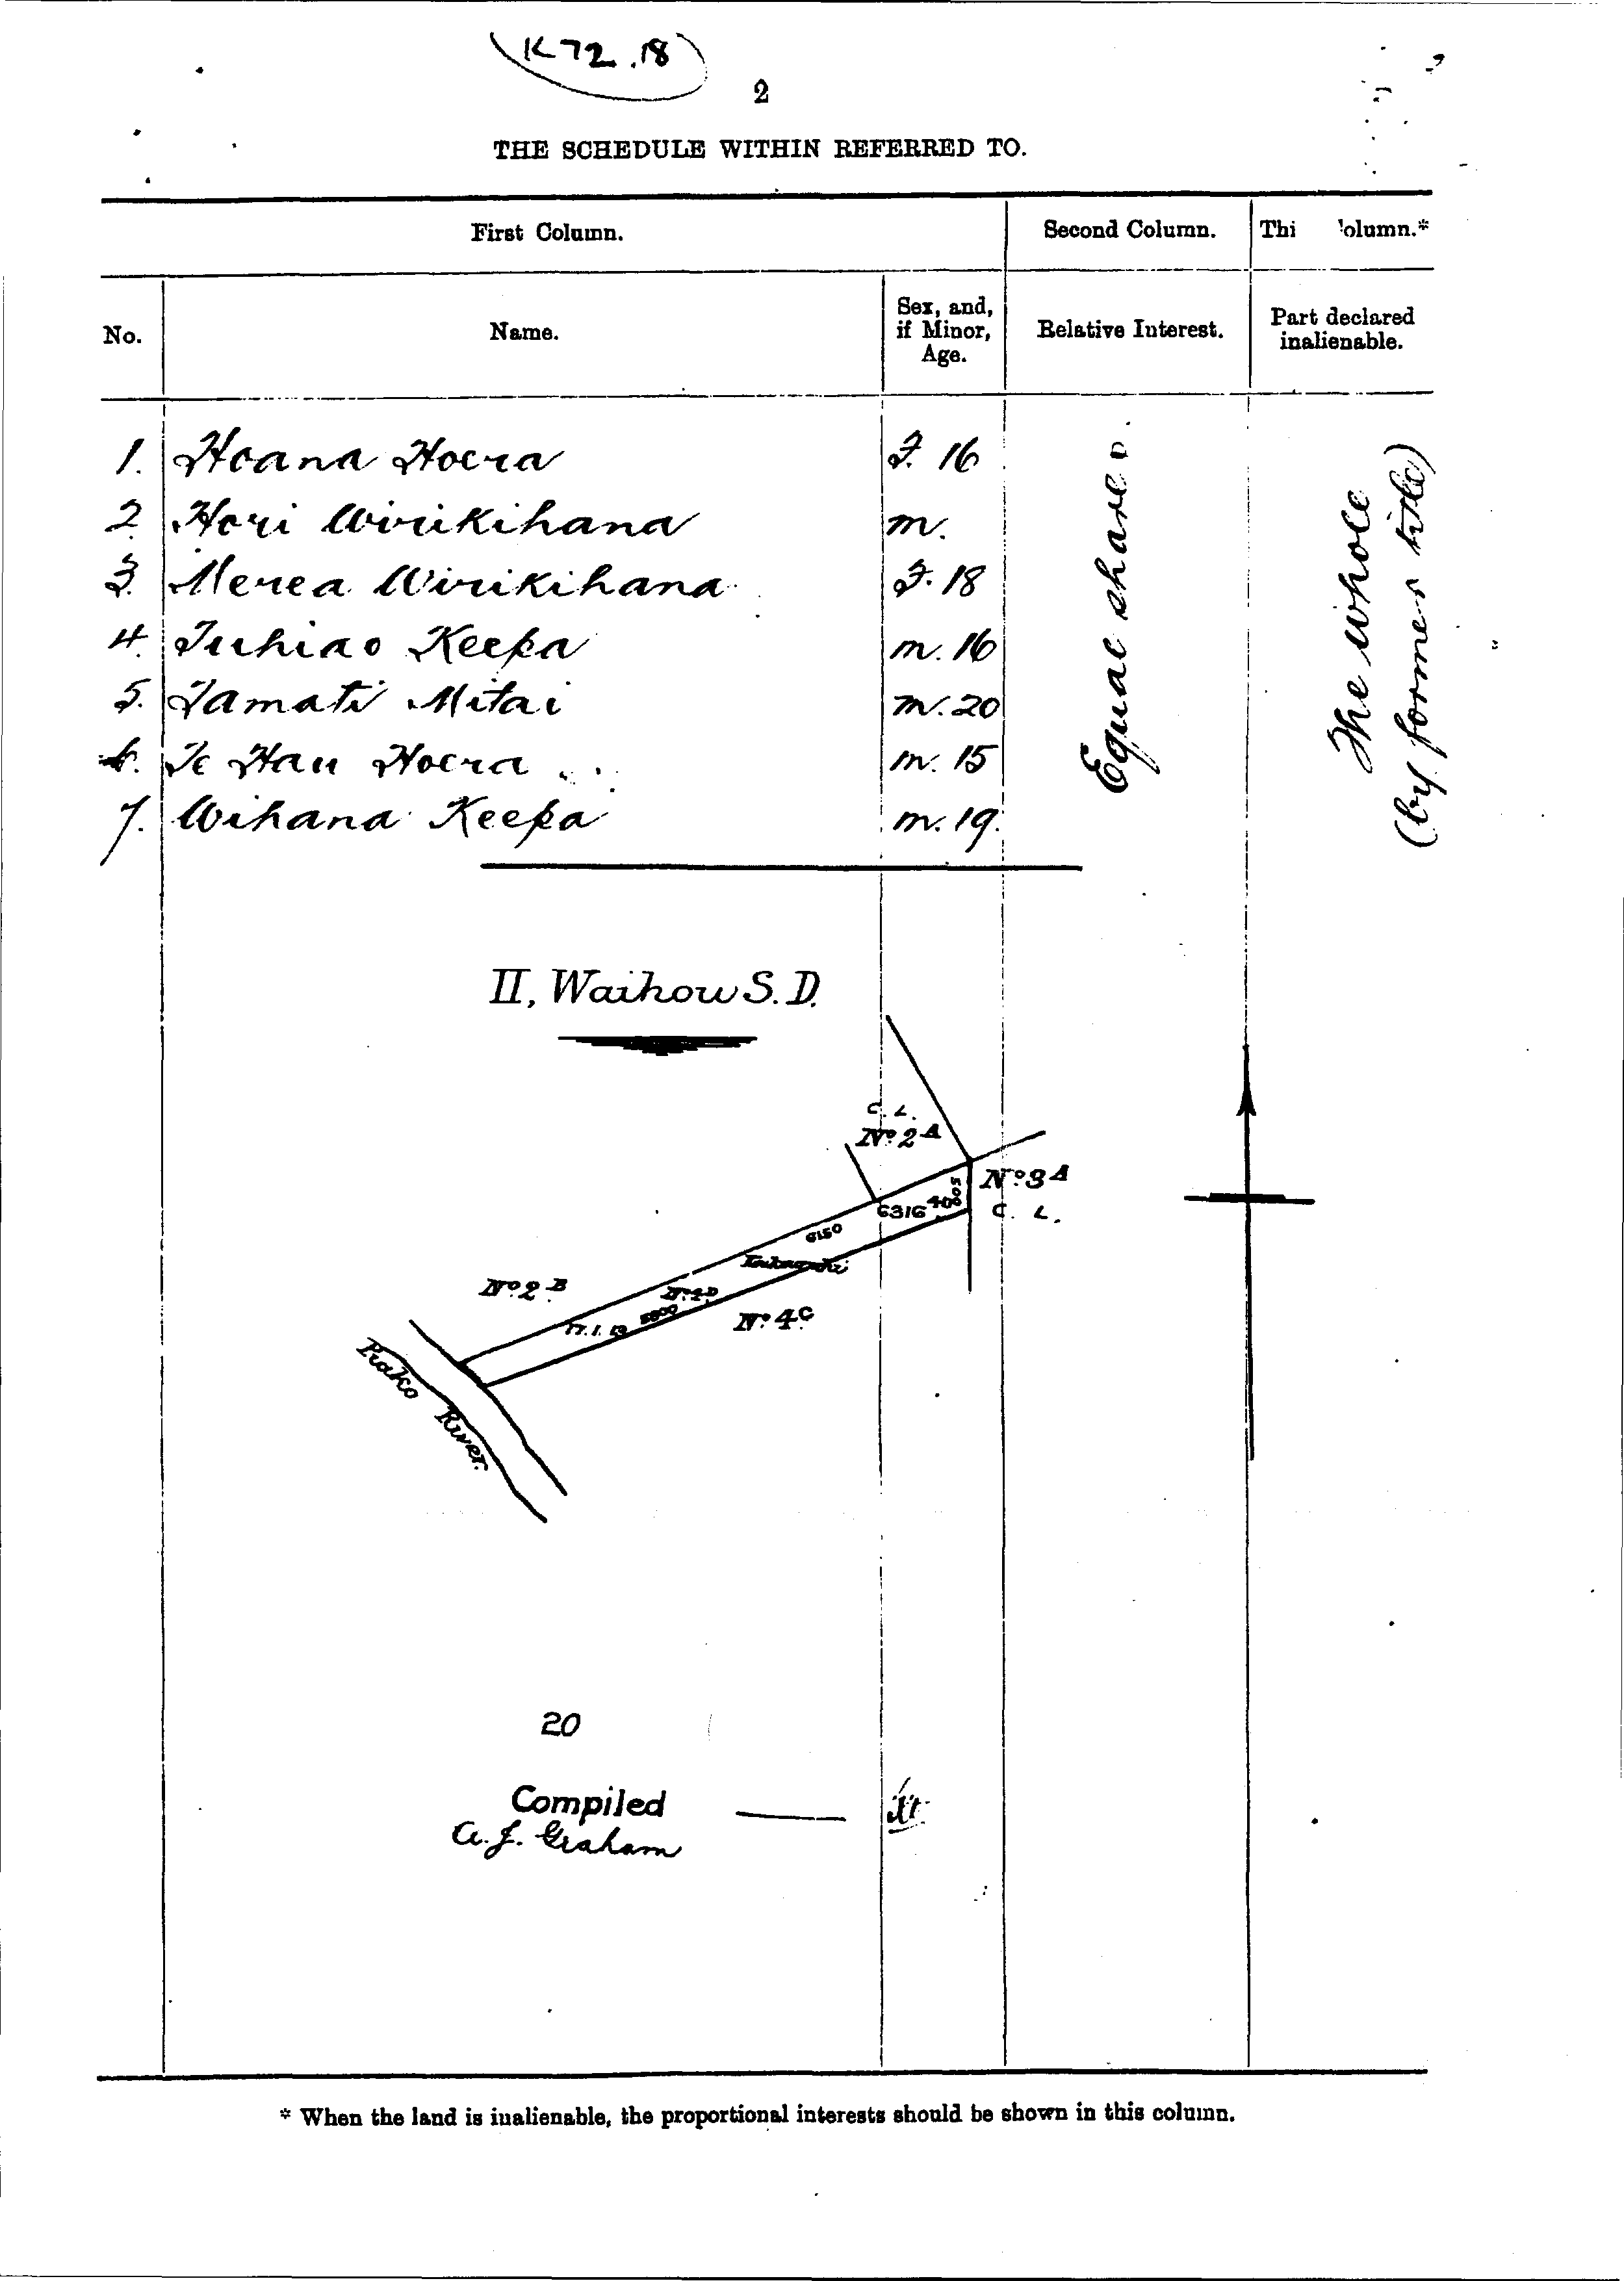 (K 72.18)
2
THE SCHEDULE WITHIN REFERRED TO.
First Column. Second Column. Thi olumn.*
No. Name. Sex, and, if Minor, Age. Relative Interest. Part declared inalienable.
1. Hoana Hoera F. 16
2. Hori Wirikihana m.
3. Merea Wirikihana F. 18
4. Tuhiao Keepa m. 16
5. Tamati Mitai m. 20
6. Te Hau Hoera m. 15
7. Wihana Keepa m. 19.
Equal shares.
The whole
(by former title)
II, Waihou S. D.
C. L.
No. 2A
No. 3A
C. L.
500
40
6316
6150
No. 2B
No. 4D
5800
17. 1. 13
No. 4C
Piako River.
20
Compiled
A. J. Graham
* When the land is inalienable, the proportional interests should be shown in this column.